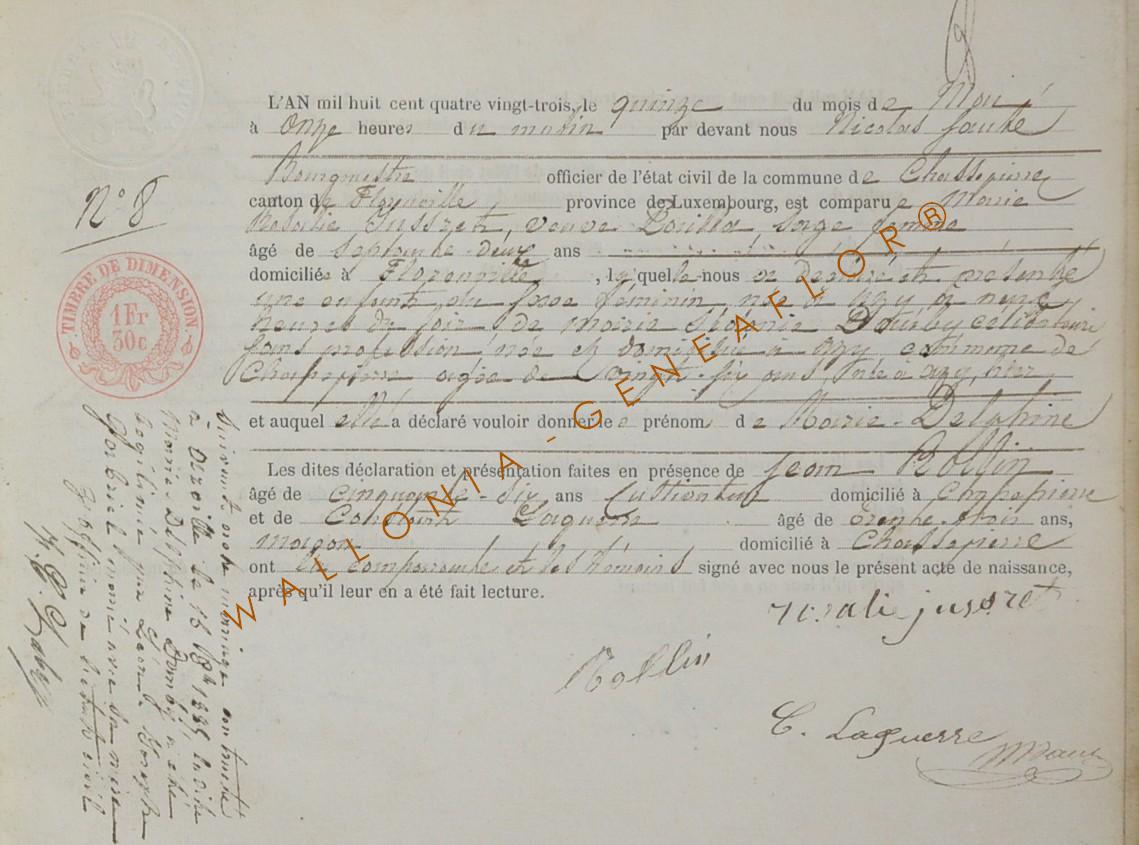 L'AN mil huit cent quatre vingt-trois, le quinze du mois de Mai
à onze heures du matin par devant nous Nicolas
Bourgmestre officier de l'état civil de la commune de Chassepierre
canton de Florenville province de Luxembourg, est comparue Marie
Rosalie Jusseret, veuve sage femme
âgé de septante deux ans
domiciliée à Florenville, laquelle nous a déclaré et présenté
une enfant du sexe féminin, née à Azy à neuf
heures du soir de Marie célibataire
sans profession née et domiciliée à Azy, commune de
Chassepierre agée de vingt-six ans, née à Azy, hier
et auquel elle a déclaré vouloir donner le prénom de Marie-Delphine
Les dites déclaration et présentation faites en présence de Jean Rollin
âgé de cinquante-six ans Cultivateur domicilié à Chassepierre
et de Constant Laguerre âgé de trente-trois ans,
maçon domicilié à Chassepierre
ont la comparante et les témoins signé avec nous le présent acte de naissance,
après qu'il leur en a été fait lecture.
rosalie jusseret
Rollin
C. Laguerre
N° 8
TIMBRE DE DIMENSION
1 Fr
30 c
Suivant acte mariage contracté
à le 16 1885 ladite
Marie Delphine a été
légitimée par Léon Joseph
Gabriel sa mère
de l'état civil
WALLONIA-GENEAFLOR®